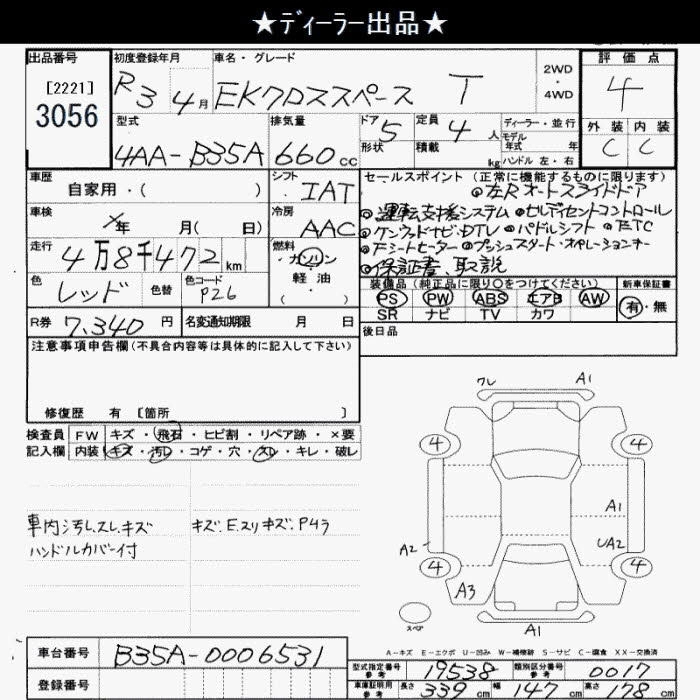 ★ディーラー出品★
出品番号 初度登録年月 車名・グレード 評価点
[2221] R3 4月 EKクロススペース T 2WD・4WD 4
3056
型式 排気量 ドア 5 定員 4人 ディーラー・並行 外装 内装
形状 積載 kg モデル年式 年 C C
4AA-B35A 660cc ハンドル 左・右
車歴 シフト セールスポイント(正常に機能するものに限ります)
自家用・( ) IAT ◎左Rオートスライドドア
車検 年 月( 日) 冷房 AAC ◎運転支援システム ●ヒルディセントコントロール
走行 燃料 ◎ケンウッドナビ・DTV ●パドルシフト ●ETC
4万8千472km ガソリン・軽油・( ) ●Fシートヒーター ●プッシュスタート・オペレーションキー
色 レッド 色替 色コード P26 ◎保証書、取説
装備品(純正品に限り○をつけてください) 新車保証書
PS PW ABS エアB AW 有・無
SR ナビ TV カワ
R券 7,340円 名変通知期限 月 日 後日品
注意事項申告欄(不具合内容等は具体的に記入して下さい)
修復歴 有 [箇所 ]
検査員 FW キズ・飛石・ヒビ割・リペア跡・×要
記入欄 内装 キズ・汚レ・コゲ・穴・スレ・キレ・破レ
ワレ A1
4 4
A1
A2 UA2
4 4
A3
スペア A1
車内汚レ、スレ、キズ キズ、E、スリキズ、P4ラ
ハンドルカバー付
A-キズ E-エクボ U-凹み W-補修跡 S-サビ C-腐食 XX-交換済
車台番号 B35A-0006531
登録番号
型式指定番号 参考 19538 類別区分番号 参考 0017
車庫証明用 参考 長さ 339cm 幅 147cm 高さ 178cm